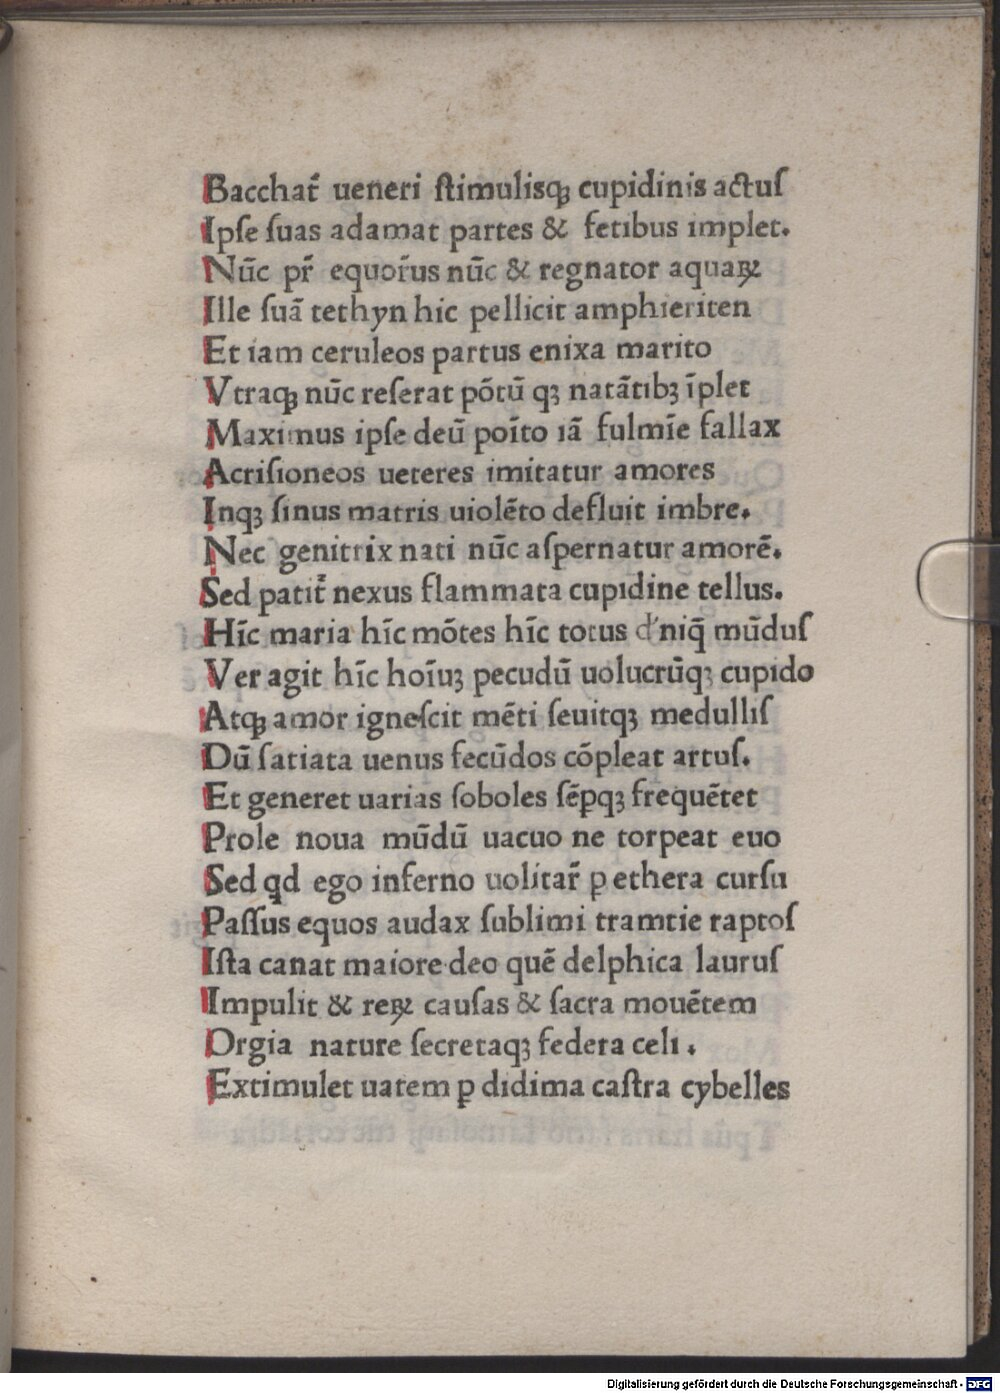 Bacchat᷑ ueneri ſtimuliſqꝫ cupidinis actuſ
Ipſe ſuas adamat partes & fetibus implet.
Nūc pr̄ equor᷑us nūc & regnator aquaꝝ
Ille ſuā tethyn hic pellicit amphieriten
Et iam ceruleos partus enixa marito
Vtraqꝫ nūc reſerat pōtū qꝫ natātibꝫ īplet
Maximus ipſe deū poīto iā fulmīe fallax
Acriſioneos ueteres imitatur amores
Inqꝫ ſinus matris uiolēto defluit imbre.
Nec genitrix nati nūc aſpernatur amorē.
Sed patit᷑ nexus flammata cupidine tellus.
Hīc maria hīc mōtes hīc totus d'niq̄ mūduſ
Ver agit hīc hoīuꝫ pecudū uolucrūqꝫ cupido
Atqꝫ amor igneſcit mēti ſeuitqꝫ medulliſ
Dū ſatiata uenus fecūdos cōpleat artuſ.
Et generet uarias ſoboles ſēꝑqꝫ frequētet
Prole noua mūdū uacuo ne torpeat euo
Sed qd ego inferno uolitar᷑ ꝑ ethera curſu
Paſſus equos audax ſublimi tramtie raptoſ
Iſta canat maiore deo quē delphica lauruſ
Impulit & reꝝ cauſas & ſacra mouētem
Orgia nature ſecretaqꝫ federa celi.
Extimulet uatem ꝑ didima caſtra cybelles
Digitalisierung gefördert durch die Deutsche Forschungsgemeinschaft - DFG